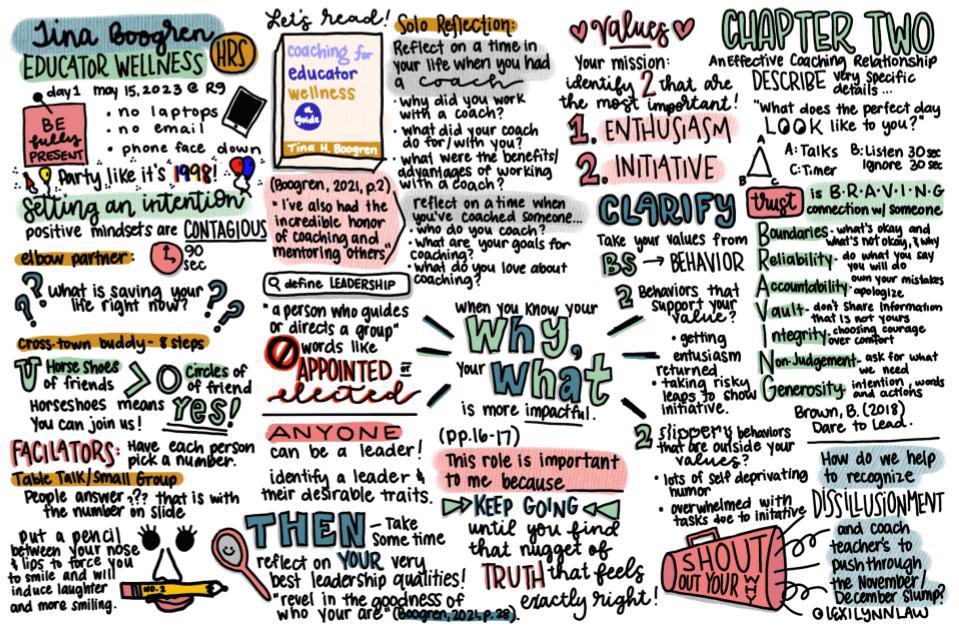 Tina Boogren
EDUCATOR WELLNESS
HRS
day 1 may 15, 2023 @ R9
BE
fully
PRESENT
• no laptops
• no email
• phone face down
Party like it's 1998!
Setting an intention
positive mindsets are CONTAGIOUS
elbow partner:
90
sec
? What is saving your ?
? life right now? ?
cross-town buddy - 8 steps
Horse Shoes
of friends
> O Circles of
of friend
Horseshoes means
You can join us!
YES!
FACILATORS: Have each person
pick a number.
Table Talk/Small Group
People answer ??? that is with
the number on slide
put a pencil
between your nose
& lips to force you
to smile and will
induce laughter
and more smiling.
NO. 2
Let's read!
coaching for
educator
wellness
a
guide
Tina H. Boogren
(Boogren, 2021, p.2)
"I've also had the
incredible honor
of coaching and
mentoring others"
define LEADERSHIP
"a person who guides
or directs a group"
words like
APPOINTED or
elected
ANYONE
can be a leader!
identify a leader &
their desirable traits.
THEN - Take
some time
reflect on YOUR very
best leadership qualities!
"revel in the goodness of
who your are" (Boogren, 2021, p. 28).
Solo Reflection:
Reflect on a time in
your life when you had
a coach
• why did you work
with a coach?
• what did your coach
do for/with you?
• what were the benefits/
advantages of working
with a coach?
reflect on a time when
you've coached someone...
• who do you coach?
• what are your goals for
coaching?
• what do you love about
coaching?
when you know your
Why,
your what
is more impactful.
(pp. 16-17)
This role is important
to me because
KEEP GOING
until you find
that nugget of
TRUTH that feels
exactly right!
Values
Your mission:
identify 2 that are
the most important!
1. ENTHUSIASM
2. INITIATIVE
CLARIFY
Take your values from
BS → BEHAVIOR
2 Behaviors that
support your
value?
• getting
enthusiasm
returned
• taking risky
leaps to show
initiative.
2 slippery behaviors
that are outside your
values?
• lots of self deprivating
humor
• overwhelmed with
tasks due to initative
SHOUT
OUT YOUR WHY
CHAPTER TWO
An Effective Coaching Relationship
DESCRIBE very specific
details...
"What does the perfect day
LOOK like to you?"
A
B
C
A: Talks B: Listen 30 sec
C: Timer Ignore 30 sec
trust is B·R·A·V·I·N·G
connection w/ someone
Boundaries - what's okay and
what's not okay, & why
Reliability - do what you say
you will do
Accountability - own your mistakes
apologize
Vault - don't share information
that is not yours
Integrity - choosing courage
over comfort
Non-Judgement - ask for what
we need
Generosity - intention, words
and actions
Brown, B. (2018)
Dare to Lead.
How do we help
to recognize
DISSILLUSIONMENT
and coach
teacher's to
push through
the November/
December slump?
@LEXILYNNLAW